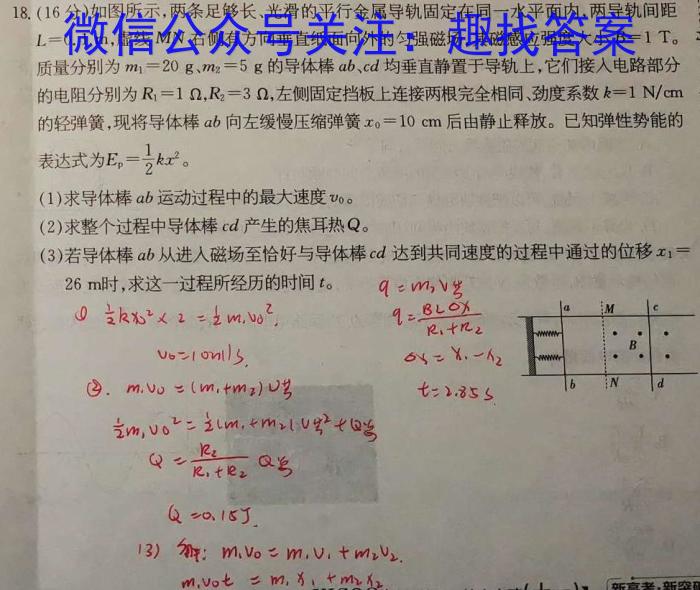 18.(16分)如图所示,两条足够长、光滑的平行金属导轨固定在同一水平面内,两导轨间距
微信公众号关注:趣找答案
L= MN右侧有方向垂直纸面向外的匀强磁场, 1 T。
质量分别为m₁=20 g、m₂=5 g的导体棒ab、cd均垂直静置于导轨上,它们接入电路部分
的电阻分别为R₁=1 Ω,R₂=3 Ω,左侧固定挡板上连接两根完全相同、劲度系数k=1 N/cm
的轻弹簧,现将导体棒ab向左缓慢压缩弹簧x₀=10 cm后由静止释放。已知弹性势能的
表达式为Eₚ=1/2kx²。
(1)求导体棒ab运动过程中的最大速度v₀。
(2)求整个过程中导体棒cd产生的焦耳热Q。
(3)若导体棒ab从进入磁场至恰好与导体棒cd达到共同速度的过程中通过的位移x₁=
26 m时,求这一过程所经历的时间t。
① 1/2kx₀²×2=1/2m₁v₀²
v₀=10m/s.
②. m₁v₀=(m₁+m₂)v共
1/2m₁v₀²=1/2(m₁+m₂)v共²+Q总
Q=R₂/(R₁+R₂) Q总
Q=0.15J.
(3) m₁v₀=m₁v₁+m₂v₂.
m₁v₀t=m₁x₁+m₂x₂
q=BLΔx/(R₁+R₂)
Δx=x₁-x₂
t=2.85s
a
M
c
B
b
N
d
新高考·新突破